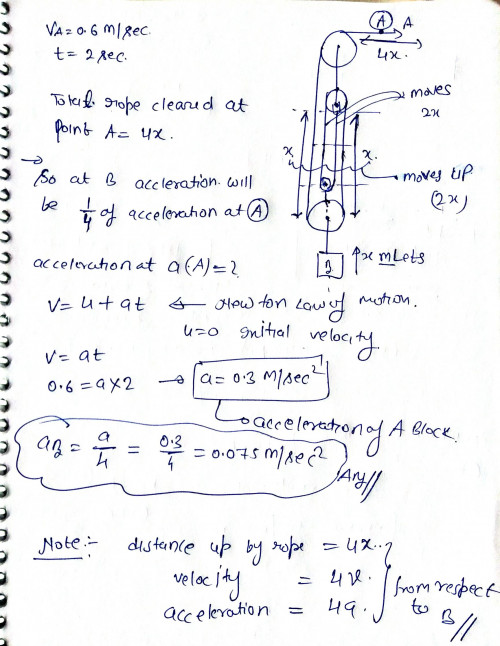 VA = 0.6 m/sec.
t = 2 sec.
Total rope cleared at
point A = 4x.
→ So at B accleration will
be 1/4 of acceleration at Ⓐ
Ⓐ A
4x.
moves
2x
x
x.
moves up
(2x)
B
↑x mLets
acceleration at a(A) = ?
V = u + at ← Newton Law of motion.
u=0 initial velocity
V = at
0.6 = a x 2 → a = 0.3 m/sec²
acceleration of A Block.
aB = a/4 = 0.3/4 = 0.075 m/sec² Ans//
Note:- distance up by rope = 4x..
velocity = 4v.
acceleration = 4a.
from respect
to B//